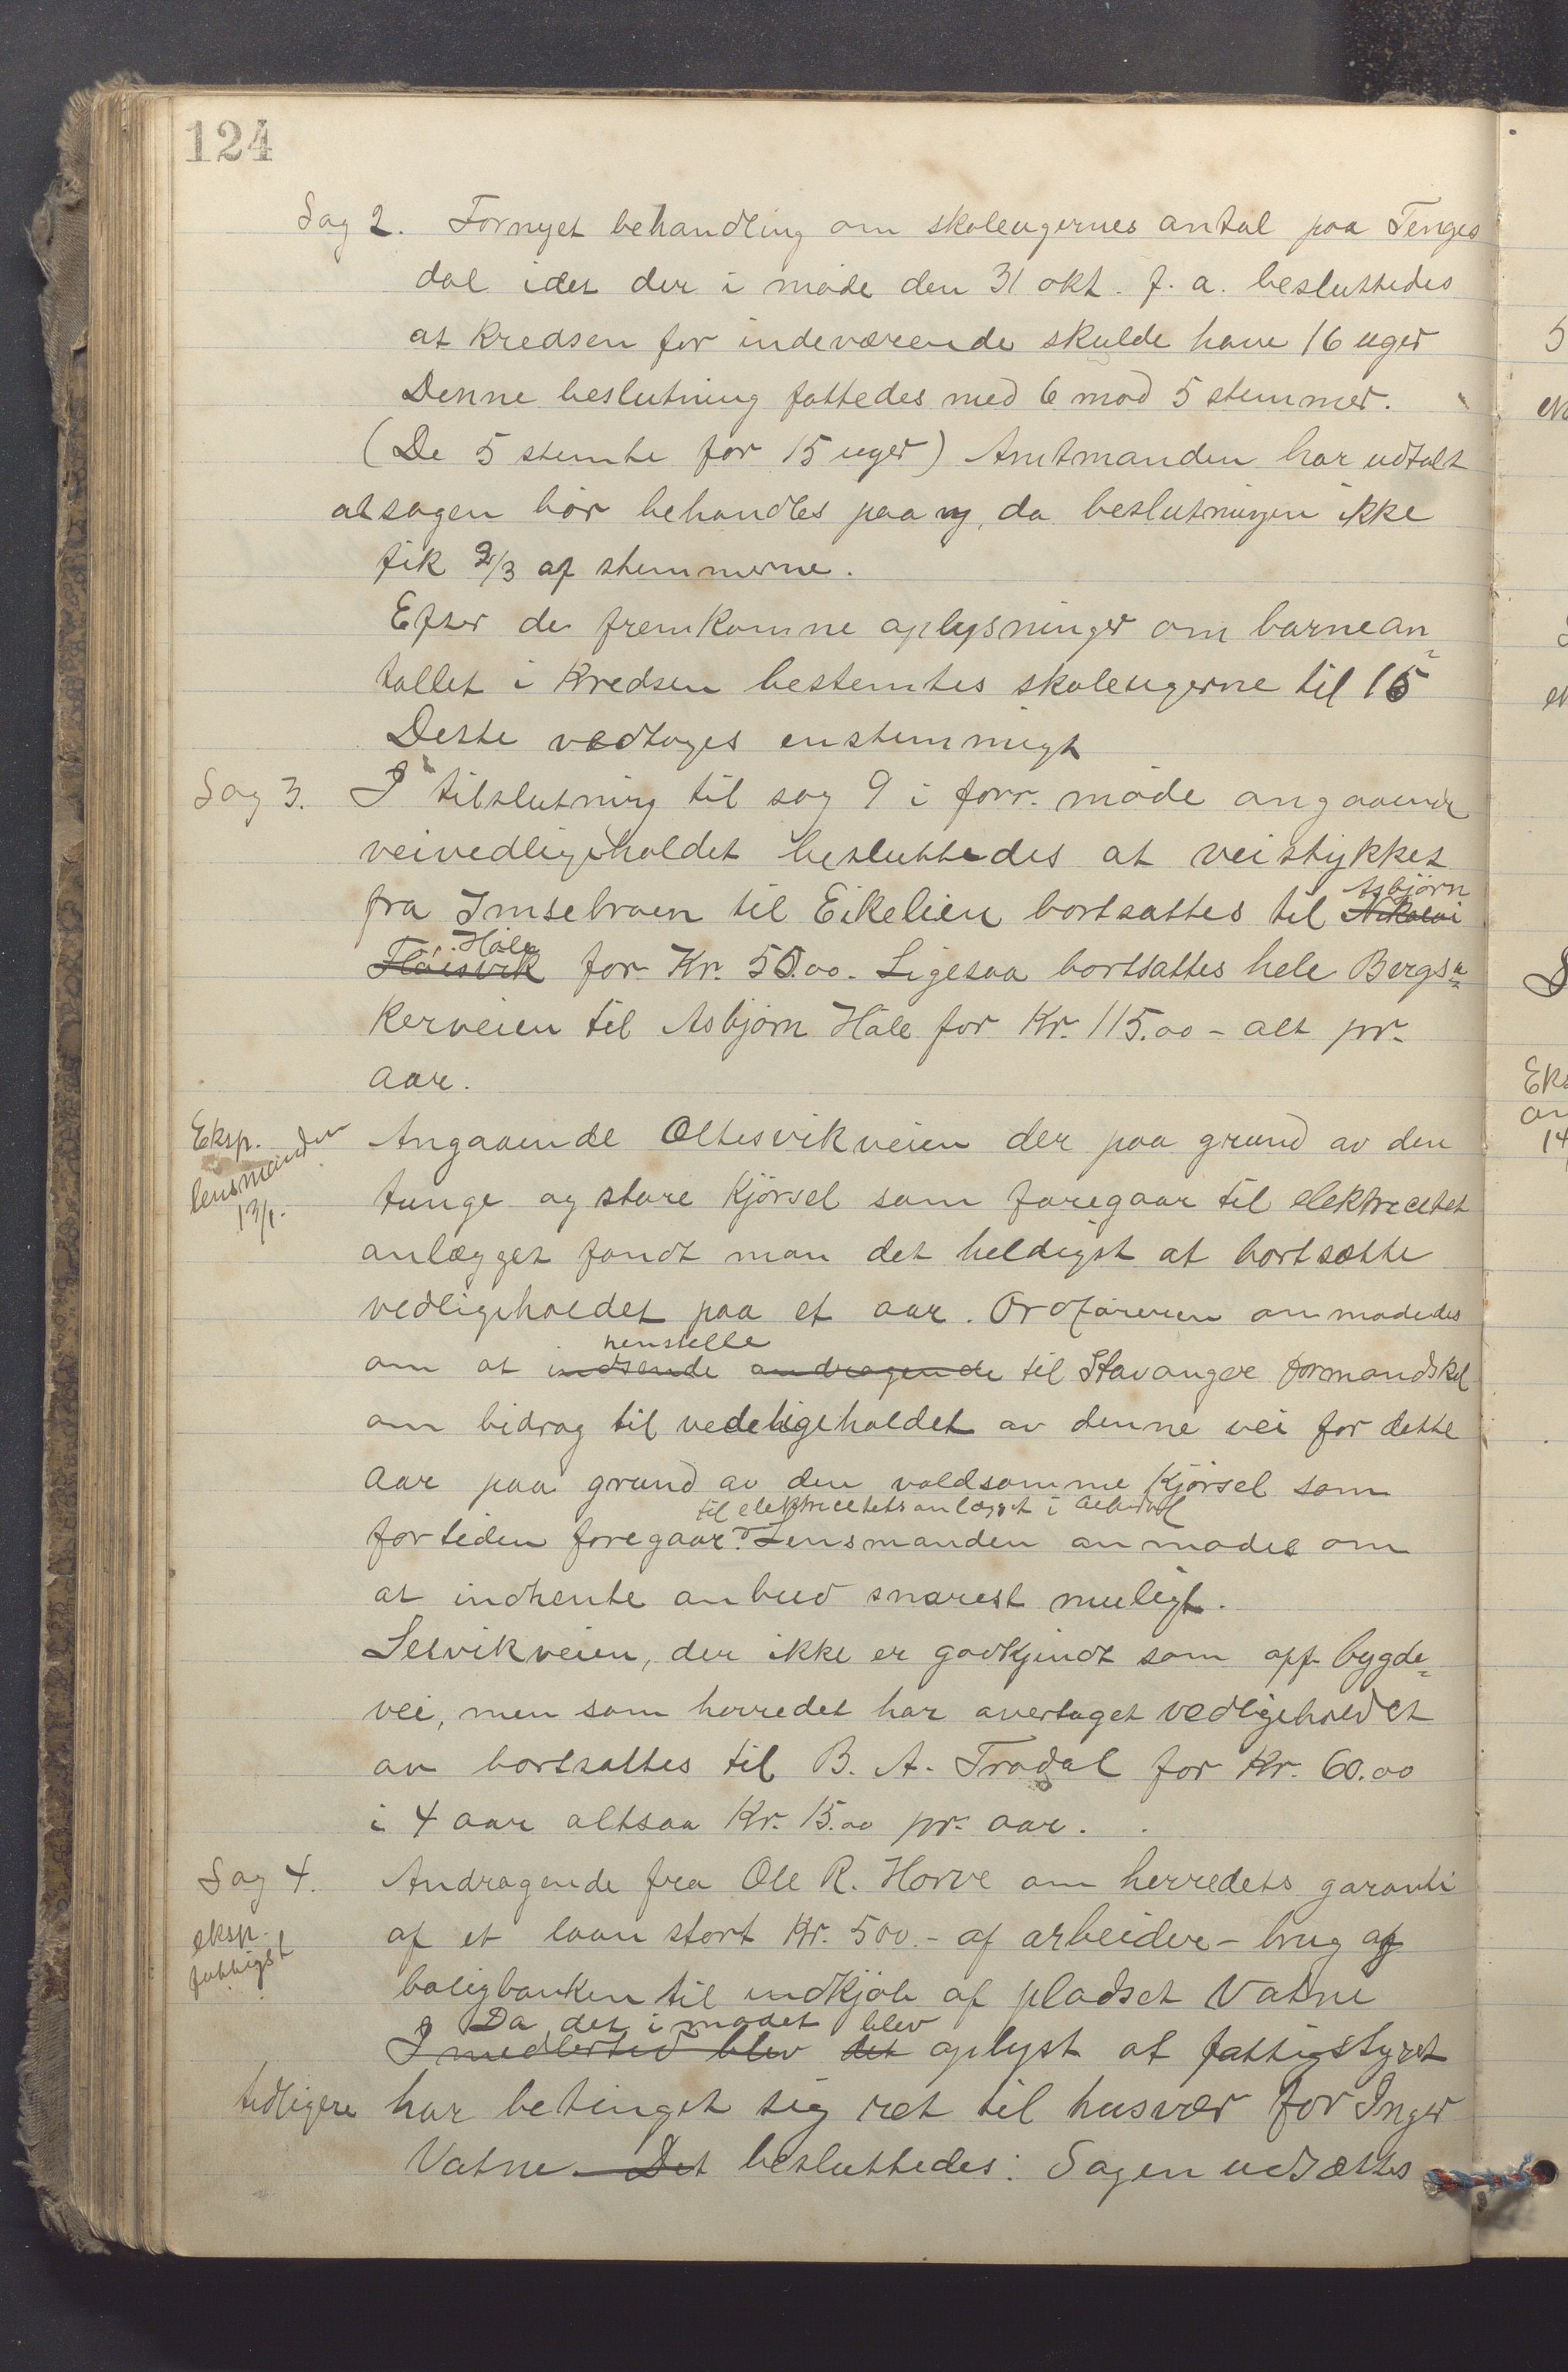 124
Sag 2. Fornyet behandling om skoleugernes antal paa Tenges
dal idet der i møde den 31 okt. f. a. besluttedes
at kredsen for indeværende skulde have 16 uger
Denne beslutning fattedes med 6 mod 5 stemmer.
(De 5 stemte for 15 uger) Amtmanden har udtalt
at sagen bør behandles paa ny, da beslutningen ikke
fik 2/3 af stemmerne.
Efter de fremkomne oplysninger om barnean=
tallet i kredsen bestemtes skoleugerne til 15
Dette vedtoges enstemmigt
Sag 3. I tilslutning til sag 9 i forr. møde angaaende
veivedligeholdet besluttedes at veistykket
fra Imsebroen til Eikelien bortsattes til Nikolai Asbjørn
Fløisvik Håle for Kr. 50.00. Ligesaa bortsattes hele Bergsa=
kerveien til Asbjørn Håle for Kr. 115.00 - alt pr.
aar.
Eksp.
lensmanden
13/1.
Angaaende Oltesvikveien der paa grund av den
tunge og store kjørsel som foregaar til elektricitet
anlægget fandt man det heldigst at bortsætte
vedligeholdet paa et aar. Ordføreren anmodedes
henstelle
om at indsende andragende til Stavanger formandskab
om bidrag til vedeligeholdet av denne vei for dette
aar paa grund av den voldsomme kjørsel som
til elektricitetsanlægget i
for tiden foregaar. Lensmanden anmodes om
at indhente anbud snarest muligt.
Selvikveien, der ikke er godkjendt som off. bygde=
vei, men som herredet har overtaget vedligeholdet
av bortsattes til B. A. Tradal for Kr. 60.00
i 4 aar altsaa Kr. 15.00 pr. aar.
Sag 4. Andragende fra Ole R. Horve om herredets garanti
eksp.
fattigst
af et laan stort Kr. 500.- af arbeider- brug og
boligbanken til indkjøb af pladset Vatne
Da det i mødet blev
Imedlertid blev det oplyst at fattigstyret
tidligere har betinget sig ret til husvær for Inger
Vatne. Det besluttedes: Sagen udsættes